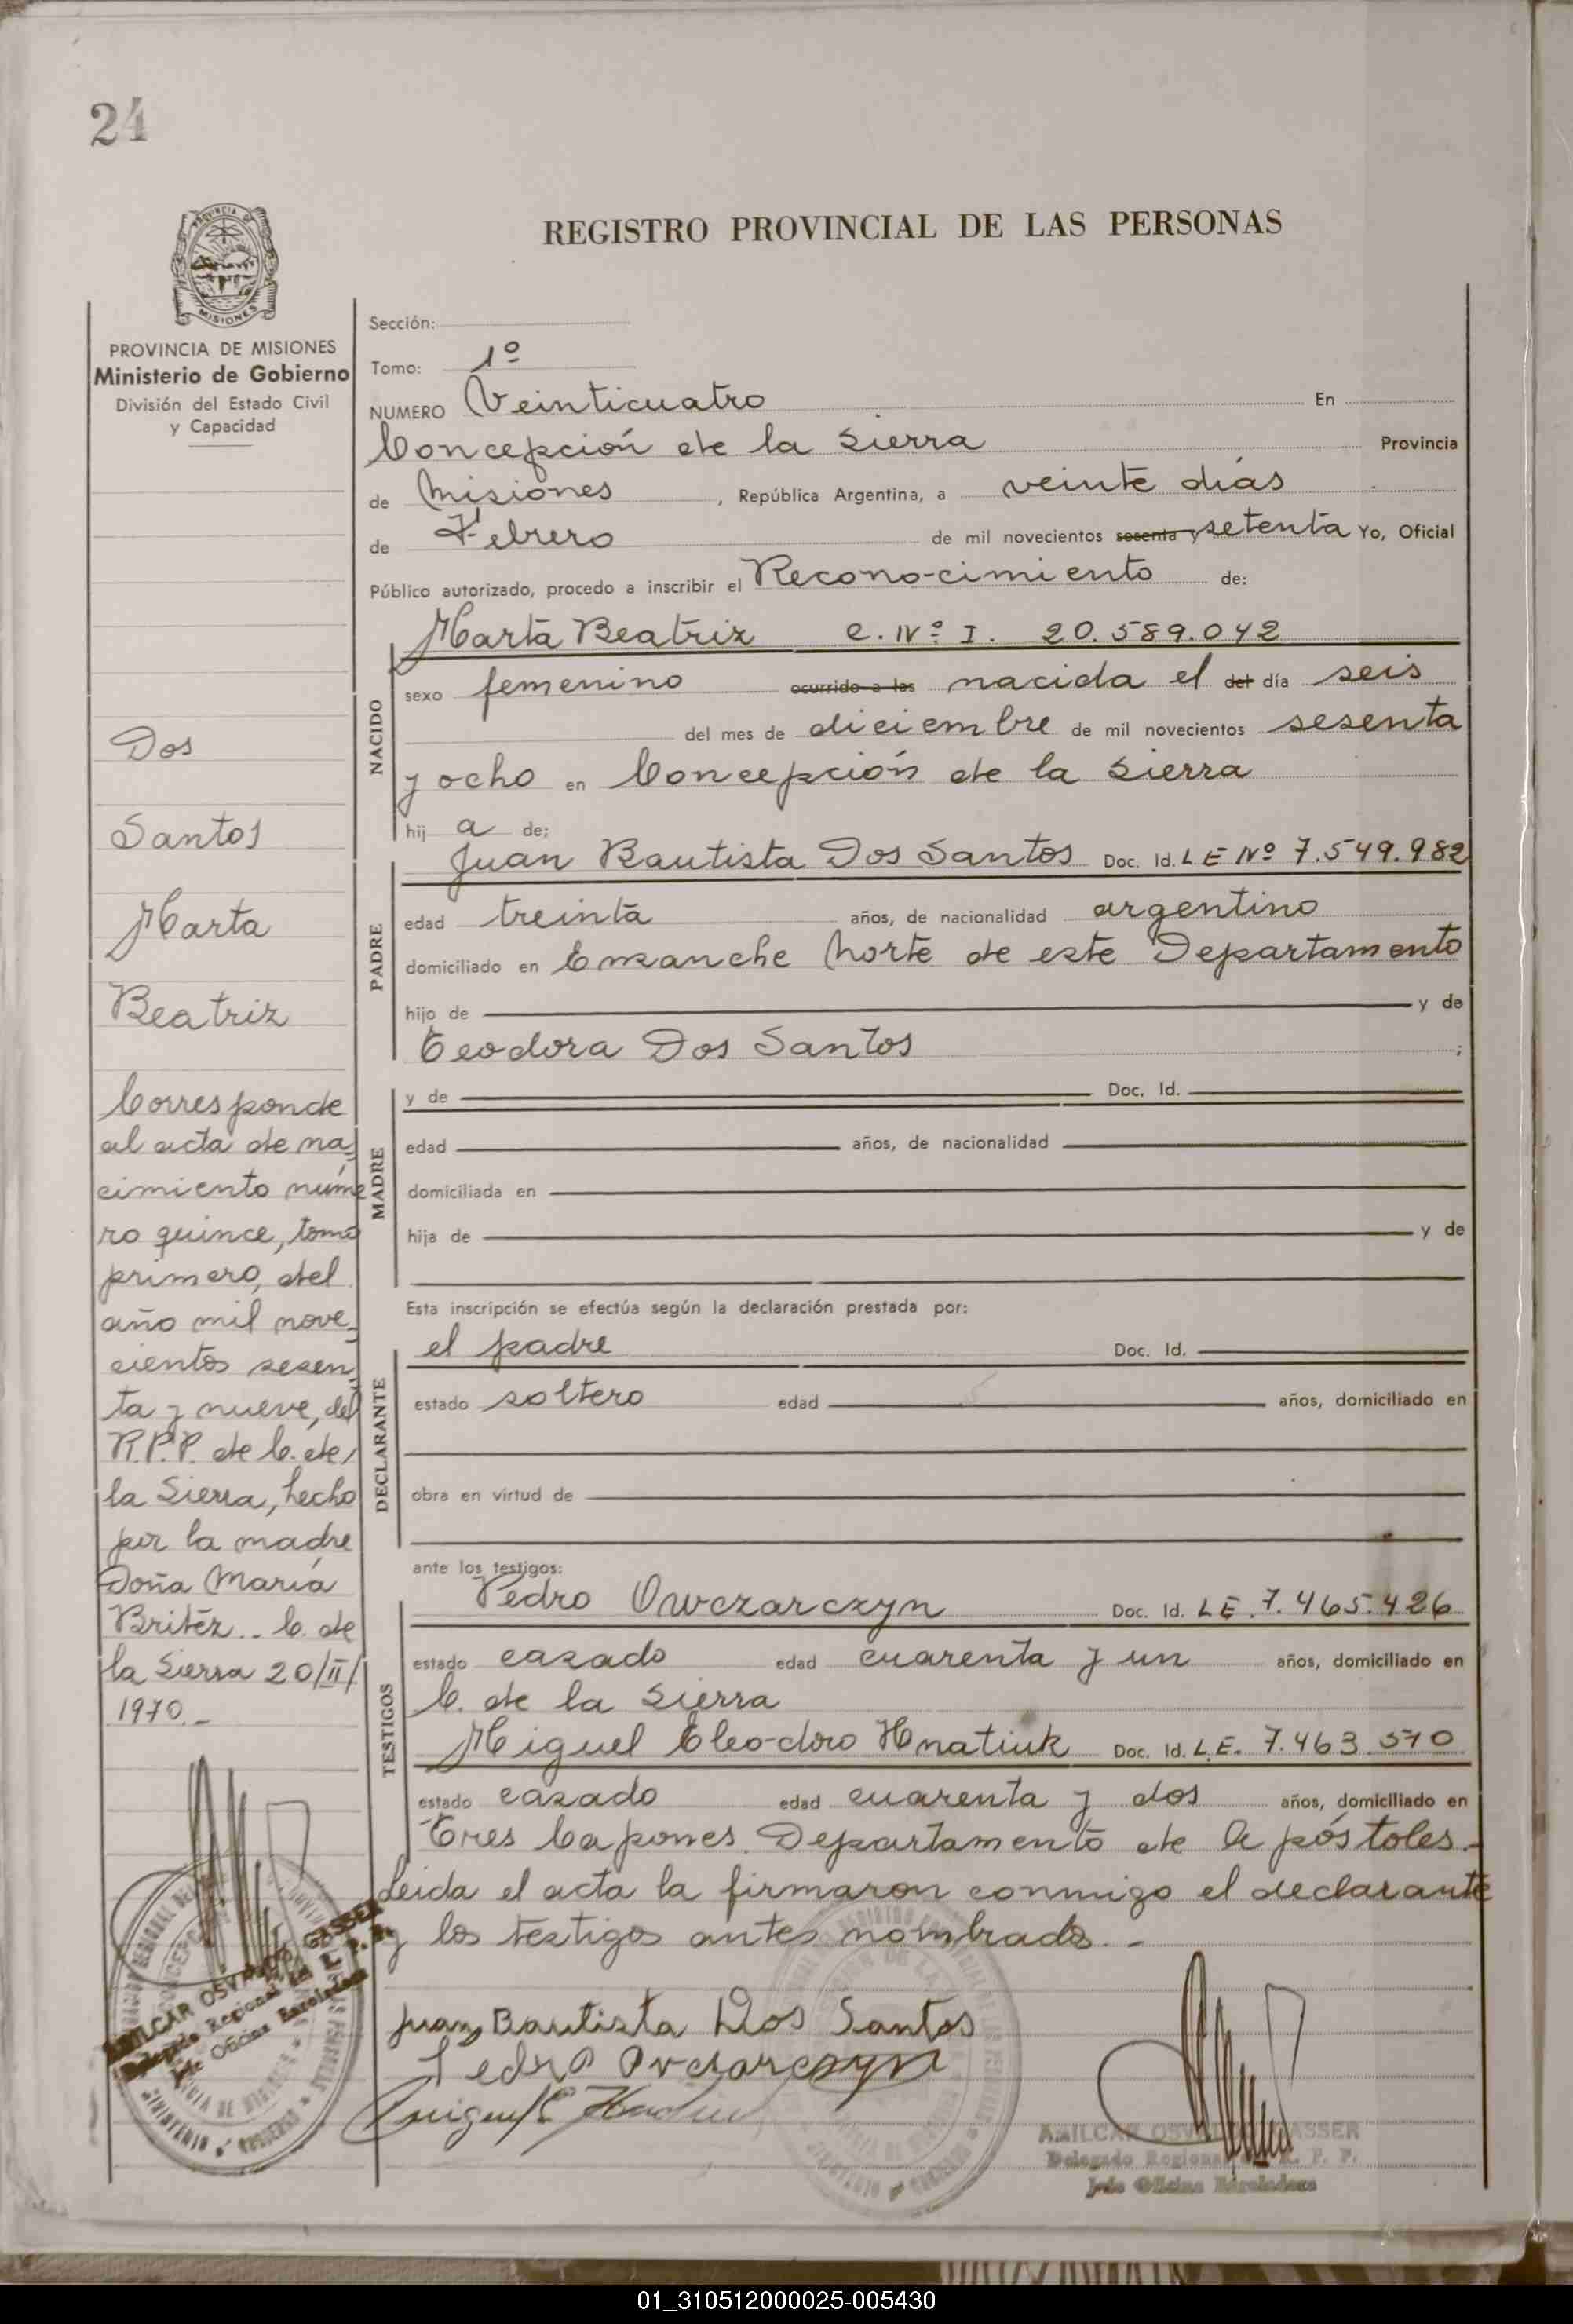 24
REGISTRO PROVINCIAL DE LAS PERSONAS
PROVINCIA DE MISIONES
Ministerio de Gobierno
División del Estado Civil
y Capacidad
Dos
Santos
Marta
Beatriz
Corresponde
al acta de na-
cimiento núme
ro quince, tomo
primero, del
año mil nove-
cientos sesen-
ta y nueve, del
R.P.P. de C. de
la Sierra, hecho
por la madre
Doña María
Britéz.- C. de
la Sierra 20/II/
1970.-
Sección:
Tomo: 1º
NUMERO Veinticuatro En
Concepción de la Sierra Provincia
de Misiones, República Argentina, a veinte días
de Febrero de mil novecientos sesenta y setenta Yo, Oficial
Público autorizado, procedo a inscribir el Reconocimiento de:
NACIDO
Marta Beatriz C. Nº I. 20.589.042
sexo femenino ocurrido a las nacida el del día seis
del mes de diciembre de mil novecientos sesenta
y ocho en Concepción de la Sierra
hij a de:
PADRE
Juan Bautista Dos Santos Doc. Id. LE Nº 7.549.982
edad treinta años, de nacionalidad argentino
domiciliado en Ensanche Norte de este Departamento
hijo de y de
Teodora Dos Santos ;
MADRE
y de Doc. Id.
edad años, de nacionalidad
domiciliada en
hija de y de
Esta inscripción se efectúa según la declaración prestada por:
DECLARANTE
el padre Doc. Id.
estado soltero edad años, domiciliado en
obra en virtud de
ante los testigos:
TESTIGOS
Pedro Owczarczyn Doc. Id. LE. 7.465.426
estado casado edad cuarenta y un años, domiciliado en
C. de la Sierra
Miguel Eleodoro Hnatiuk Doc. Id. L.E. 7.463.570
estado casado edad cuarenta y dos años, domiciliado en
Tres Capones Departamento de Apóstoles.-
Leida el acta la firmaron conmigo el declarante
y los testigos antes nombrado.-
Juan Bautista Dos Santos
Pedro Owczarczyn
AMILCAR OSVALDO GASSER
Delegado Regional del R. P. P.
Jefe Oficina Enroladora
AMILCAR OSVALDO GASSER
Delegado Regional del R. P. P.
Jefe Oficina Enroladora
01_310512000025-005430